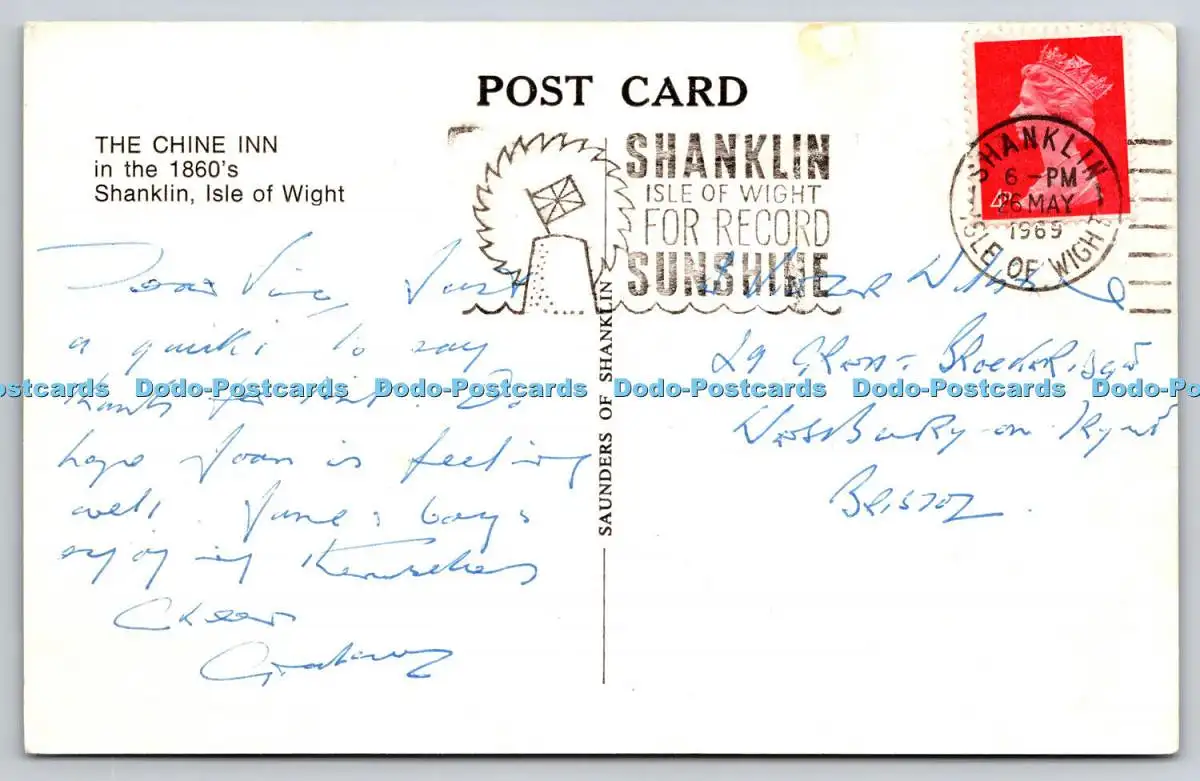 POST CARD
THE CHINE INN
in the 1860's
Shanklin, Isle of Wight
SHANKLIN
ISLE OF WIGHT
FOR RECORD
SUNSHINE
SHANKLIN
6-PM
26 MAY
1969
ISLE OF WIGHT
4D
SAUNDERS OF SHANKLIN
Dear Just
a quick to say
thanks for
hope Joan is feeling
well. June & boys
enjoying themselves
Cheers
Graham
29
Westbury-on-Trym
BRISTOL.
ostcards Dodo-Postcards Dodo-Postcards Dodo-Postcards Dodo-Postcards Dodo-